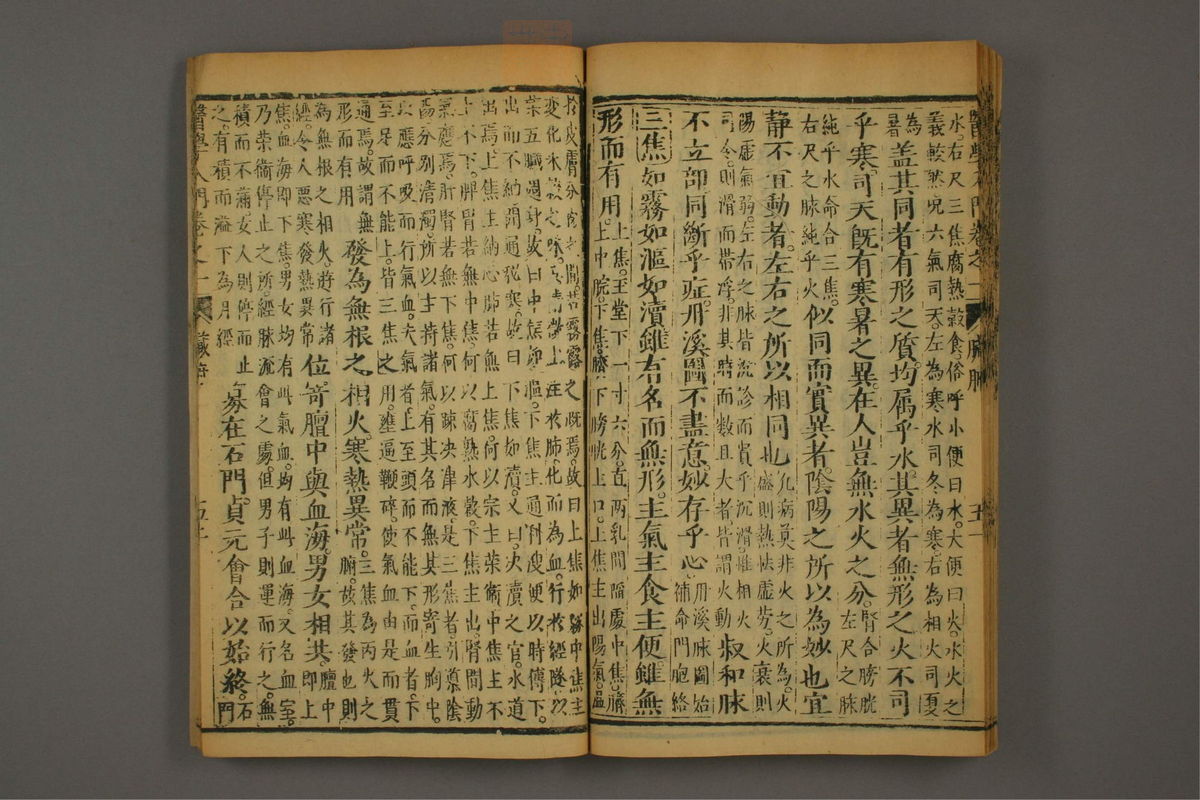 醫學入門卷之一 臟腑 五十一
水。右尺三焦腐熱穀食。俗呼小便曰水。大便曰火。水火之
義較然况六氣司天。左為寒水司冬為寒。右為相火司夏
為
暑
蓋其同者有形之質。均属乎水其異者無形之火不司
乎寒。司天既有寒暑之異。在人豈無水火之分。
腎合膀胱
左尺之脉
純乎水命合三焦。
右尺之脉純乎火
似同而實異者。陰陽之所以為妙也宜
静不宜動者。左右之所以相同也
凡病莫非火之所為。火
盛則熱怯虚劳。火衰則
陽虚氣弱。左右之脉皆沉診而貴乎沉滑。惟相火
司令。則滑而帶浮。非其時而数且大者。皆謂火動
叔和脉
不立部。同斷乎症。丹溪圖不盡意。妙存乎心
丹溪脉圖始
補命門胞絡
三焦如霧如漚如瀆。雖有名而無形。主氣主食主便。雖無
形而有用。
上焦。玉堂下一寸六分。直两乳間陷處中焦。臍
上中脘。下焦。臍下膀胱上口。上焦主出陽氣。温
於皮膚分肉之間。若霧露之溉焉。故曰上焦如霧中焦主
變化水穀之味。其精微上注於肺化而為血。行於經隧以
荣五臓週身。故曰中焦如漚。下焦主通利溲便以時傳下。
出而不納開通秘塞。故曰下焦如瀆。又曰决瀆之官。水道
出焉。上焦主納心肺若無上焦。何以宗主荣衛中焦主不
上不下。脾胃若無中焦。何以腐熟水穀。下焦主出。腎間動
氣應焉。肝腎若無下焦。何以疎决津液。是三焦者。引導陰
陽分別清濁。所以主持諸氣。有其名而無其形寄生胸中。
以應呼吸而行氣血。夫氣者上至頭而不能下。而血者下
至足而不能上。皆三焦之用。壅遏鞕碎。使氣血由是而貫
通焉。故謂無
形而有用
發為無根之相火。寒熱異常。
三焦為丙火之
腑。故其發也則
為無根之相火。游行諸
經。令人惡寒發熱異常
位寄膻中與血海。男女相共。
膻中
即上
焦。血海即下焦。男女均有此氣血。均有此血海。又名血室。
乃荣衛停止之所。經脉流會之處。但男子則運而行之。無
積而不蕭女人則停而止
之。有積而溢下為月經
募在石門。貞元會合以始終。
石
門
醫學入門卷之一 臟腑 五十一